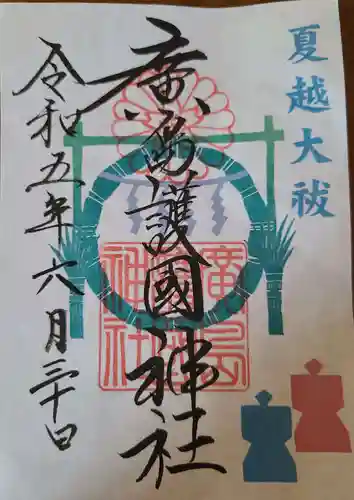 夏越大祓
廣島護國神社
令和五年六月三十日
廣島護國神社